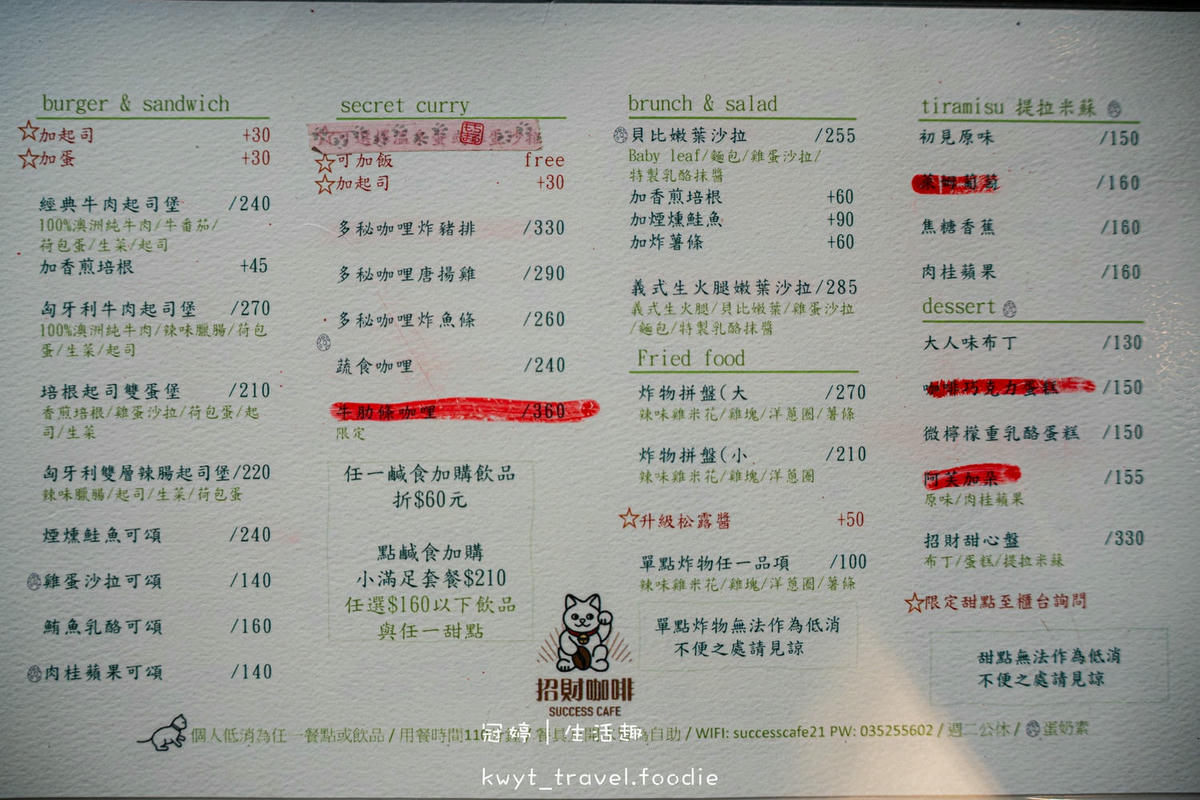 burger & sandwich
☆加起司 +30
☆加蛋 +30
經典牛肉起司堡 /240
100%澳洲純牛肉/牛番茄/
荷包蛋/生菜/起司
加香煎培根 +45
匈牙利牛肉起司堡 /270
100%澳洲純牛肉/辣味臘腸/荷包
蛋/生菜/起司
培根起司雙蛋堡 /210
香煎培根/雞蛋沙拉/荷包蛋/起
司/生菜
匈牙利雙層辣腸起司堡/220
辣味臘腸/起司/生菜/荷包蛋
煙燻鮭魚可頌 /240
雞蛋沙拉可頌 /140
鮪魚乳酪可頌 /160
肉桂蘋果可頌 /140
secret curry
☆可加飯 free
☆加起司 +30
多秘咖哩炸豬排 /330
多秘咖哩唐揚雞 /290
多秘咖哩炸魚條 /260
蔬食咖哩 /240
牛肋條咖哩 /360
限定
任一鹹食加購飲品
折$60元
點鹹食加購
小滿足套餐$210
任選$160以下飲品
與任一甜點
brunch & salad
貝比嫩葉沙拉 /255
Baby leaf/麵包/雞蛋沙拉/
特製乳酪抹醬
加香煎培根 +60
加煙燻鮭魚 +90
加炸薯條 +60
義式生火腿嫩葉沙拉/285
義式生火腿/貝比嫩葉/雞蛋沙拉
/麵包/特製乳酪抹醬
Fried food
炸物拼盤(大 /270
辣味雞米花/雞塊/洋蔥圈/薯條
炸物拼盤(小 /210
辣味雞米花/雞塊/洋蔥圈
☆升級松露醬 +50
單點炸物任一品項 /100
辣味雞米花/雞塊/洋蔥圈/薯條
單點炸物無法作為低消
不便之處請見諒
招財咖啡
SUCCESS CAFE
tiramisu 提拉米蘇
初見原味 /150
萊姆葡萄 /160
焦糖香蕉 /160
肉桂蘋果 /160
dessert
大人味布丁 /130
咖啡巧克力蛋糕 /150
微檸檬重乳酪蛋糕 /150
阿芙加朵 /155
原味/肉桂蘋果
招財甜心盤 /330
布丁/蛋糕/提拉米蘇
☆限定甜點至櫃台詢問
甜點無法作為低消
不便之處請見諒
個人低消為任一餐點或飲品 / 用餐時間 為自助 / WIFI: successcafe21 PW: 035255602 / 週二公休 / 蛋奶素
冠婷 | 生活趣
kwyt_travel.foodie